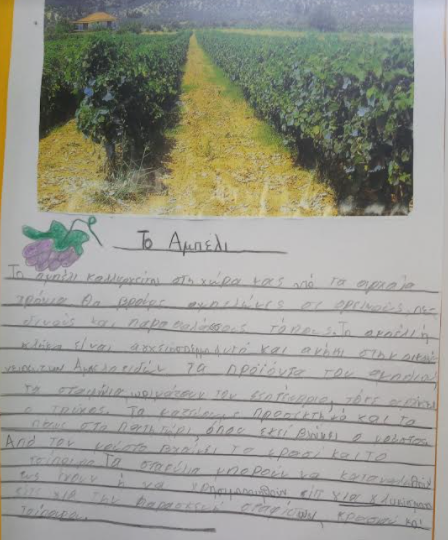 Το Αμπελι
Το αμπέλι καλλιεργείται στη χώρα μας από τα αρχαία
χρόνια. Θα βρούμε αμπελώνες σε ορεινούς, πε-
δινούς και παραθαλάσσιους τόπους. Το αμπέλι ή
κλήμα είναι αναρριχώμενο φυτό και ανήκει στην
των Αμπελιδών. Τα προϊόντα του αμπελιού
τα σταφύλια, ωριμάζουν τον Σεπτέμβριο, τότε
ο τρύγος. Τα προσεκτικά και τα
στο πατητήρι όπου εκεί βγαίνει ο μούστος
Από τον μούστο βγαίνει το κρασί και το
τσίπουρο. Τα σταφύλια μπορούν να καταναλωθούν
ως έχουν ή να χρησιμοποιηθούν είτε για γλυκίσματα
είτε για την παρασκευή σταφίδας, κρασιού και
τσίπουρου.